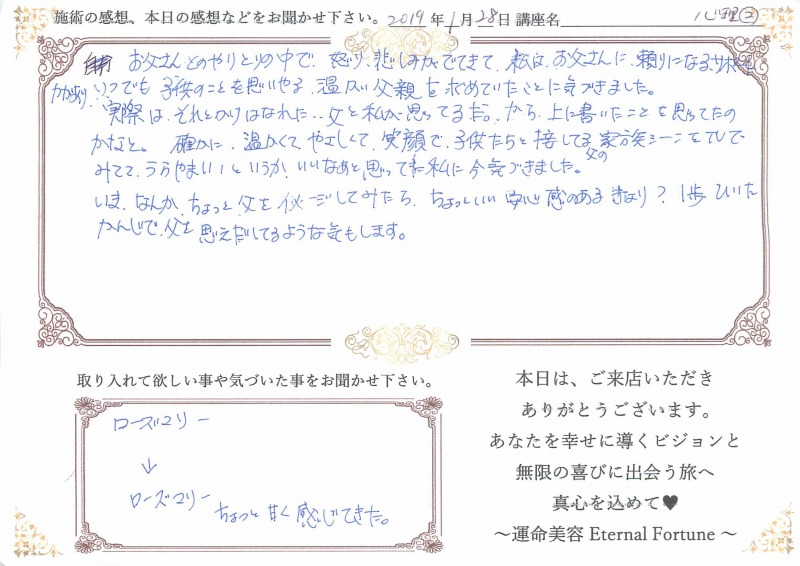 施術の感想、本日の感想などをお聞かせ下さい。 2019 年 1 月 28 日 講座名 心理②
お父さんとのやりとりの中で、怒り、悲しみがでてきて、私は、お父さんに、頼りになる、サポート
力があり、いつでも子供のことを思いやる、温かい父親を求めていたことに気づきました。
実際は、それとかけはなれた、父と私が思ってるだ。から、上に書いたことを思ってたの
かなと。 確かに、温かくて、やさしくて、笑顔で、子供たちと接してる家族シーンをTVで
みてて、うらやましい!というか、いいなあと思ってた私に今気づきました。
父の
いま、なんか、ちょっと父を してみたら、ちょっといい安心感のあるきょり? 1歩ひいた
かんじで、父を思えだしてるような気もします。
取り入れて欲しい事や気づいた事をお聞かせ下さい。
ローズマリー
↓
ローズマリー ちょっと甘く感じてきた。
本日は、ご来店いただき
ありがとうございます。
あなたを幸せに導くビジョンと
無限の喜びに出会う旅へ
真心を込めて♥
～運命美容 Eternal Fortune～